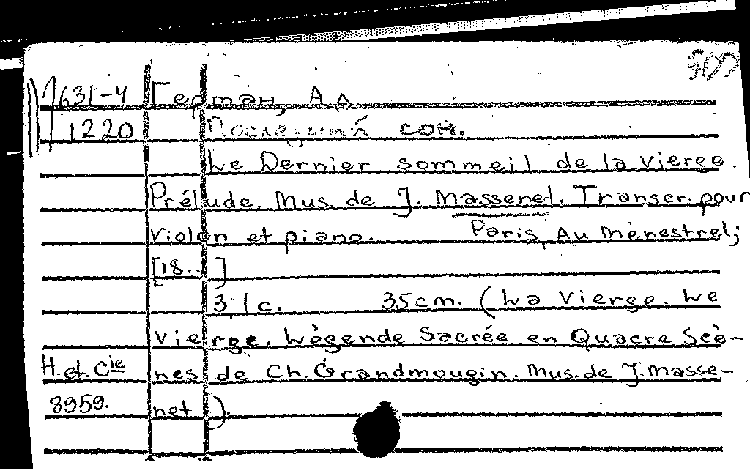 900
М631-4 Герман, А.А.
1220 Последний сон.
Le Dernier sommeil de la vierge.
Prélude. Mus. de J. Massenel. Transcr. pour
violon et piano. Paris, Au ménestrel;
[18..]
3 l c. 35 cm. (La Vierge. Le
vierge. Légende Sacrée en Quacre Scè-
H. et Cie nes de Ch. Grandmougin. Mus. de J. Masse-
8959. net).